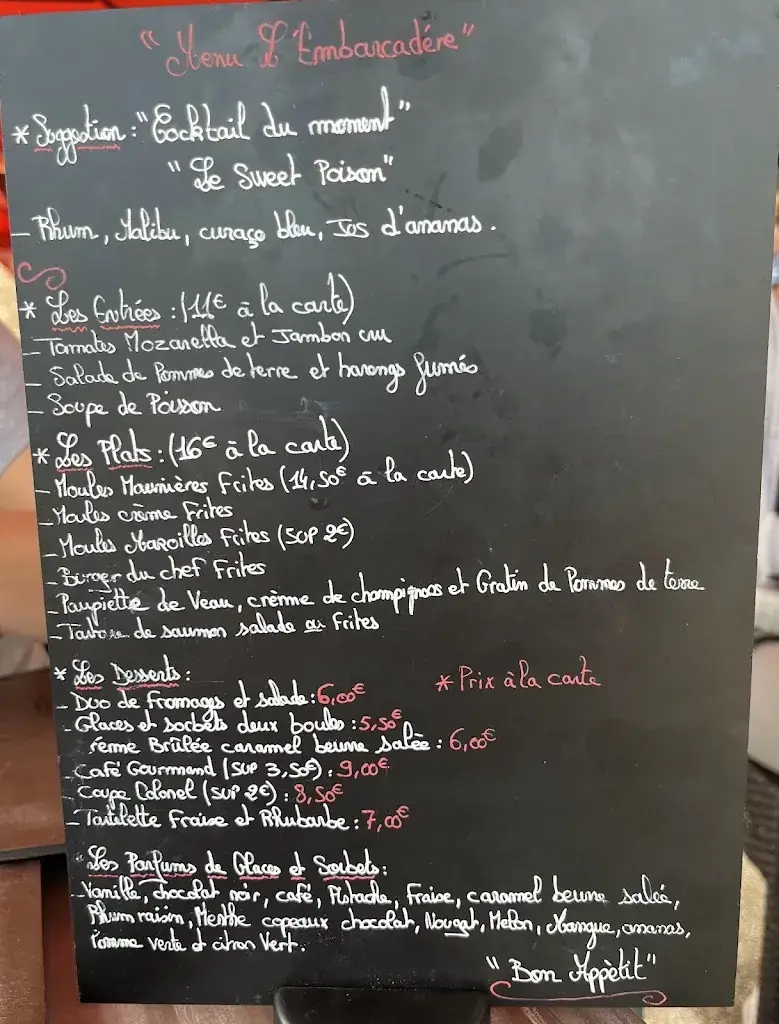 "Menu L'Embarcadére"
* Suggestion : "Cocktail du moment"
"Le Sweet Poison"
- Rhum, Malibu, curaço bleu, Jus d'ananas.
* Les Entrées : (11€ à la carte)
- Tomates Mozarella et Jambon cru
- Salade de Pommes de terre et harengs fumés
- Soupe de Poisson
* Les Plats : (16€ à la carte)
- Moules Marinières Frites (14,50€ à la carte)
- Moules crème Frites
- Moules Maroilles Frites (SUP 2€)
- Burger du chef Frites
- Paupiette de Veau, crème de champignons et Gratin de Pommes de terre
- de saumon salade ou Frites
* Les Desserts : * Prix à la carte
- Duo de Fromages et salade : 6,00€
- Glaces et sorbets deux boules : 5,50€
rème Brûlée caramel beurre salée : 6,00€
- Café Gourmand (SUP 3,50€) : 9,00€
- Coupe Colonel (SUP 2€) : 8,50€
- Tartelette Fraise et Rhubarbe : 7,00€
"Les Parfums de Glaces et Sorbets :
- Vanille, chocolat noir, café, Pistache, Fraise, caramel beurre salée,
Rhum raisin, Menthe copeaux chocolat, Nougat, Melon, Mangue, ananas,
Pomme verte et citron Vert.
"Bon Appètit"